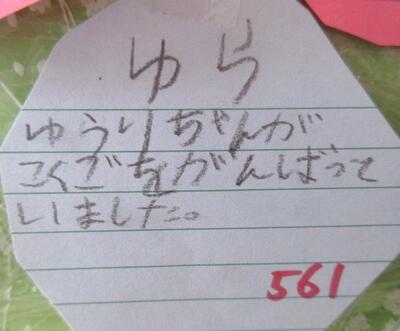 ゆら
ゆうりちゃんが
こくごをがんばって
いました。
561